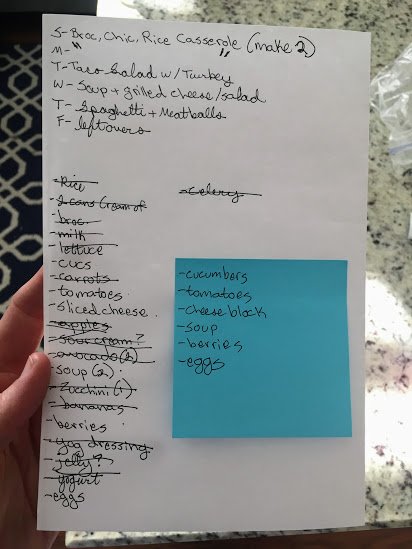 S-Broc, Chic, Rice Casserole (make 2)
M- " "
T-Taco Salad w/ Turkey
W- Soup + grilled cheese/salad
T- Spaghetti + Meatballs
F- leftovers
-Rice
-2 cans Cream of
-broc.
-milk
-lettuce
-cucs
-carrots
-tomatoes
-sliced cheese
-apples
-sour cream?
-avocado (2)
-soup (2)
-zucchini (1)
-bananas
-berries
-yog dressing
-jelly?
-yogurt
-eggs
-celery
-cucumbers
-tomatoes
-cheese block
-soup
-berries
-eggs